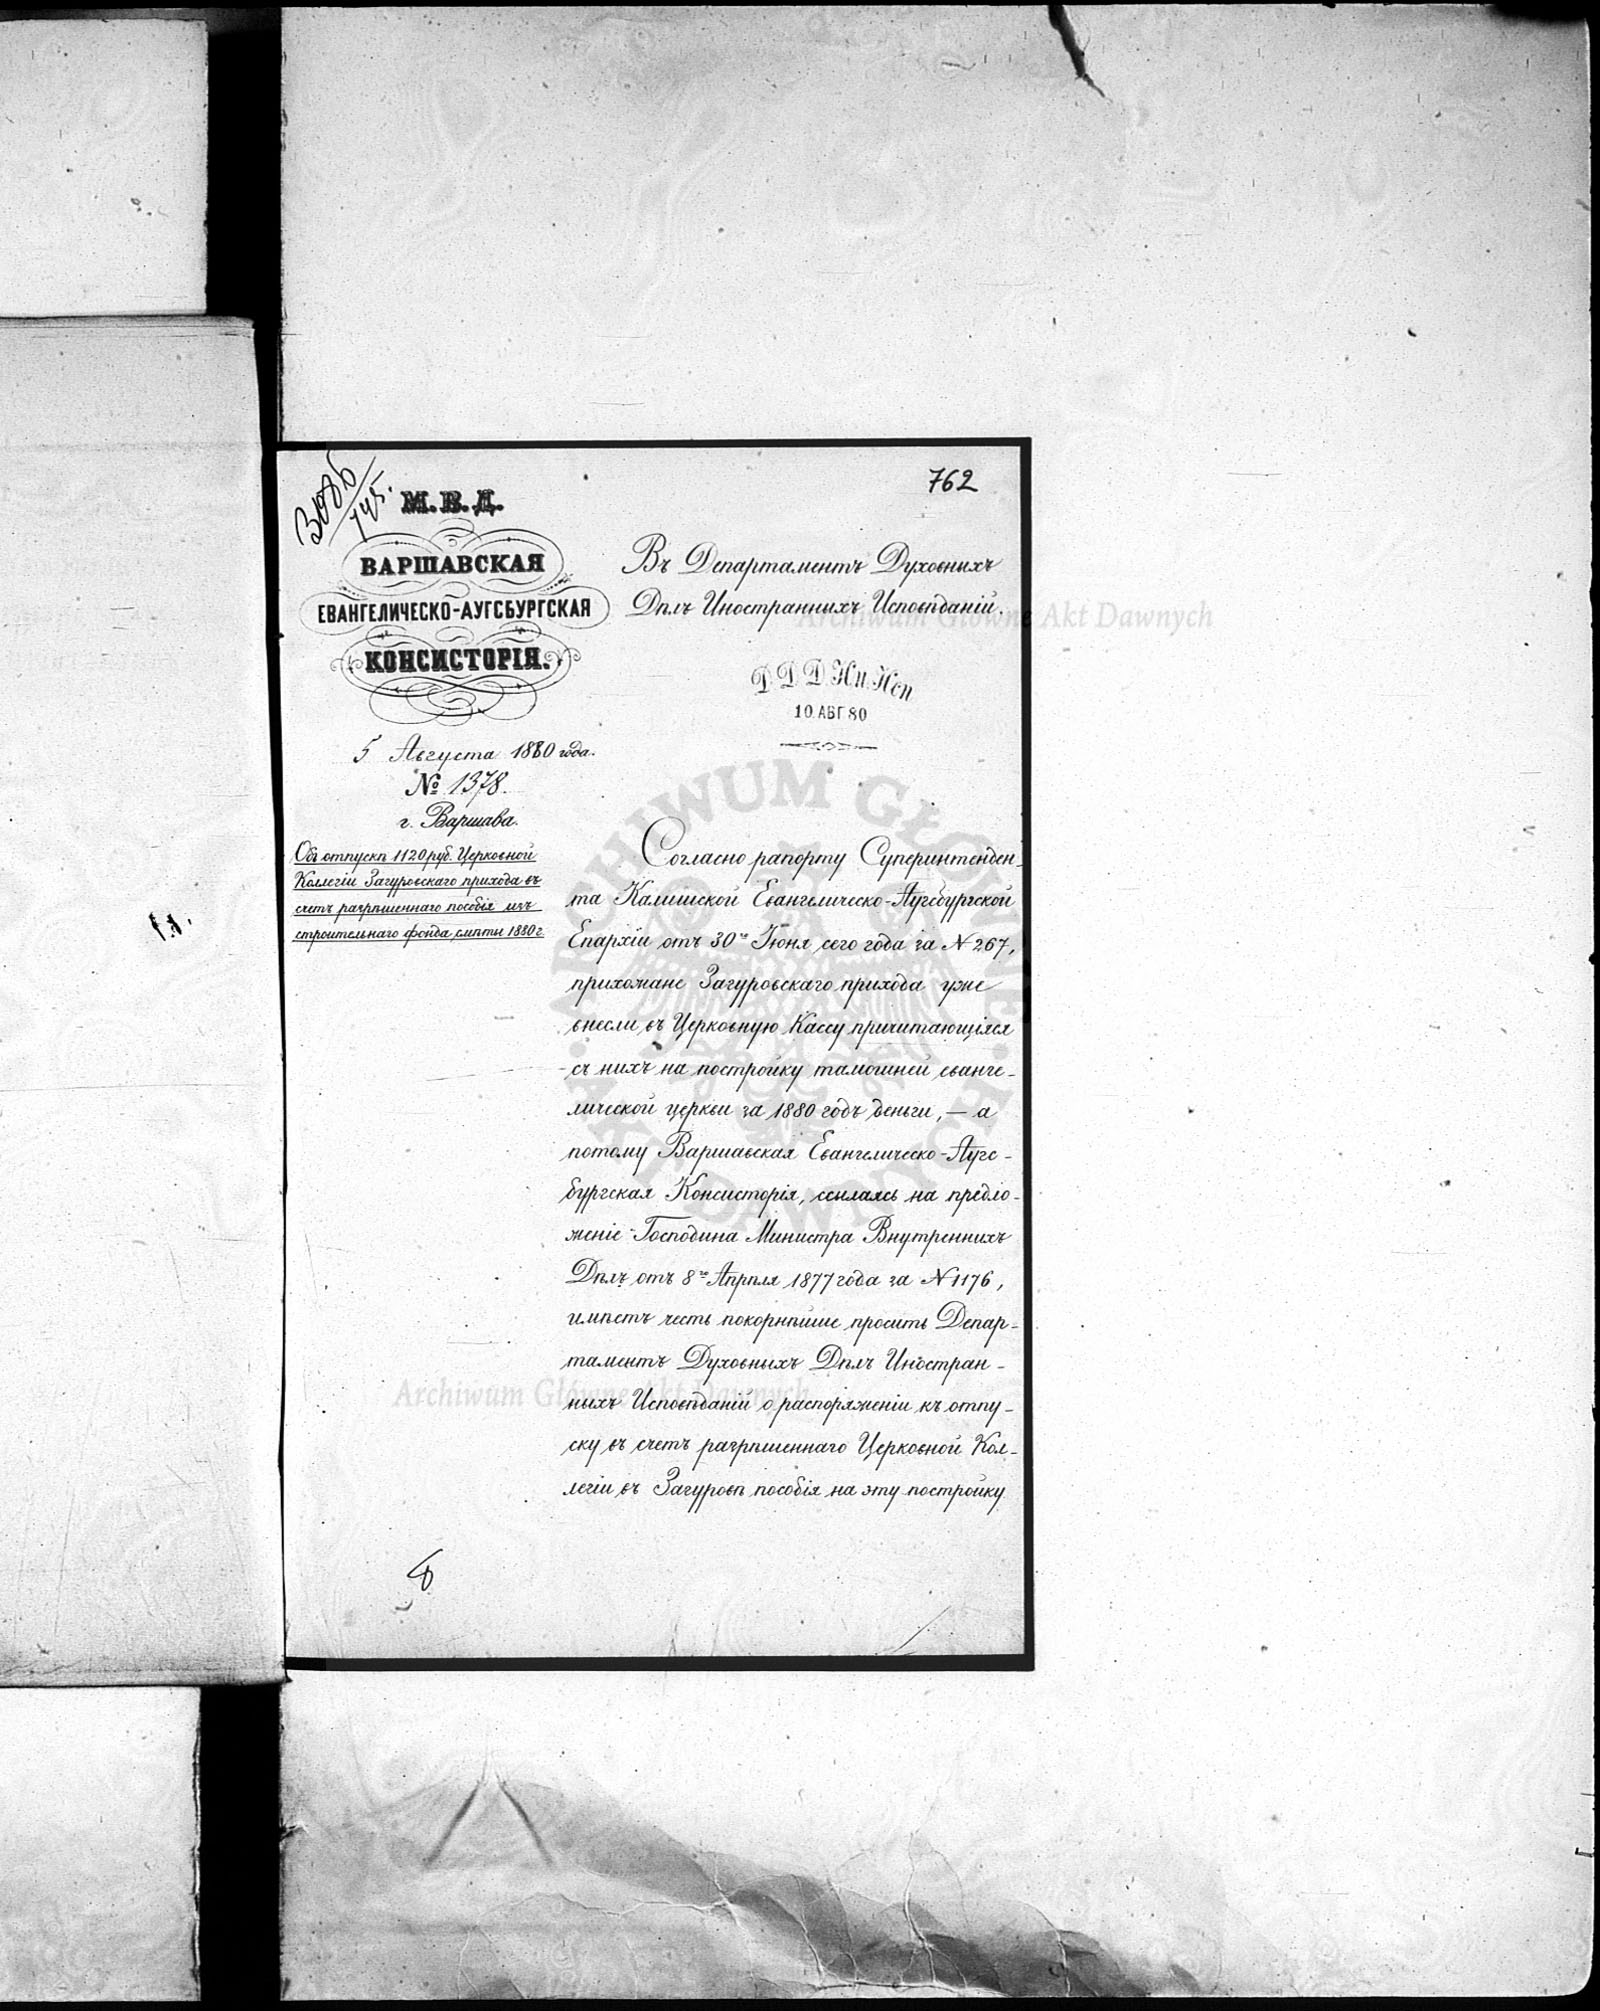 3086/145.
762
М.В.Д.
ВАРШАВСКАЯ
ЕВАНГЕЛИЧЕСКО-АУГСБУРГСКАЯ
КОНСИСТОРІЯ.
5 Августа 1880 года.
№ 1378.
г. Варшава.
Объ отпускѣ 1120 руб. Церковной
Коллегіи Загуровскаго прихода въ
счетъ разрѣшеннаго пособія изъ
строительнаго фонда, смѣты 1880 г.
Въ Департаментъ Духовныхъ
Дѣлъ Иностранныхъ Исповѣданій.
Д Д Д Ин Исп
10 АВГ 80
Согласно рапорту Суперинтенден-
та Калишской Евангелическо-Аугсбургской
Епархіи отъ 30го Іюня сего года за № 267,
прихожане Загуровскаго прихода уже
внесли въ Церковную Кассу причитающіяся
съ нихъ на постройку тамошней еванге-
лической церкви за 1880 годъ деньги, — а
потому Варшавская Евангелическо-Аугс-
бургская Консисторія, ссылаясь на предло-
женіе Господина Министра Внутреннихъ
Дѣлъ отъ 8го Апрѣля 1877 года за № 1176,
имѣетъ честь покорнѣйше просить Депар-
таментъ Духовныхъ Дѣлъ Иностран-
ныхъ Исповѣданій о распоряженіи къ отпу-
ску въ счетъ разрѣшеннаго Церковной Кол-
легіи въ Загуровѣ пособія на эту постройку
Archiwum Główne Akt Dawnych
ARCHIWUM GŁÓWNE AKT DAWNYCH
Archiwum Główne Akt Dawnych